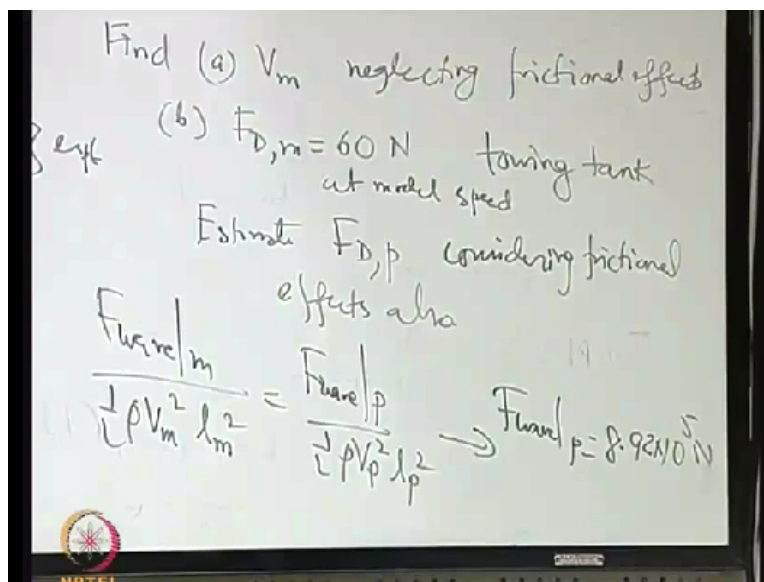 Find (a) Vm neglecting frictional effects
expt (b) FD,m = 60 N towing tank
at model speed
Estimate FD,p considering frictional
effects also
Fwave|m / ½ρVm² lm² = Fwave|p / ½ρVp² lp² → Fwave|p = 8.92×10⁵ N
NPTEL